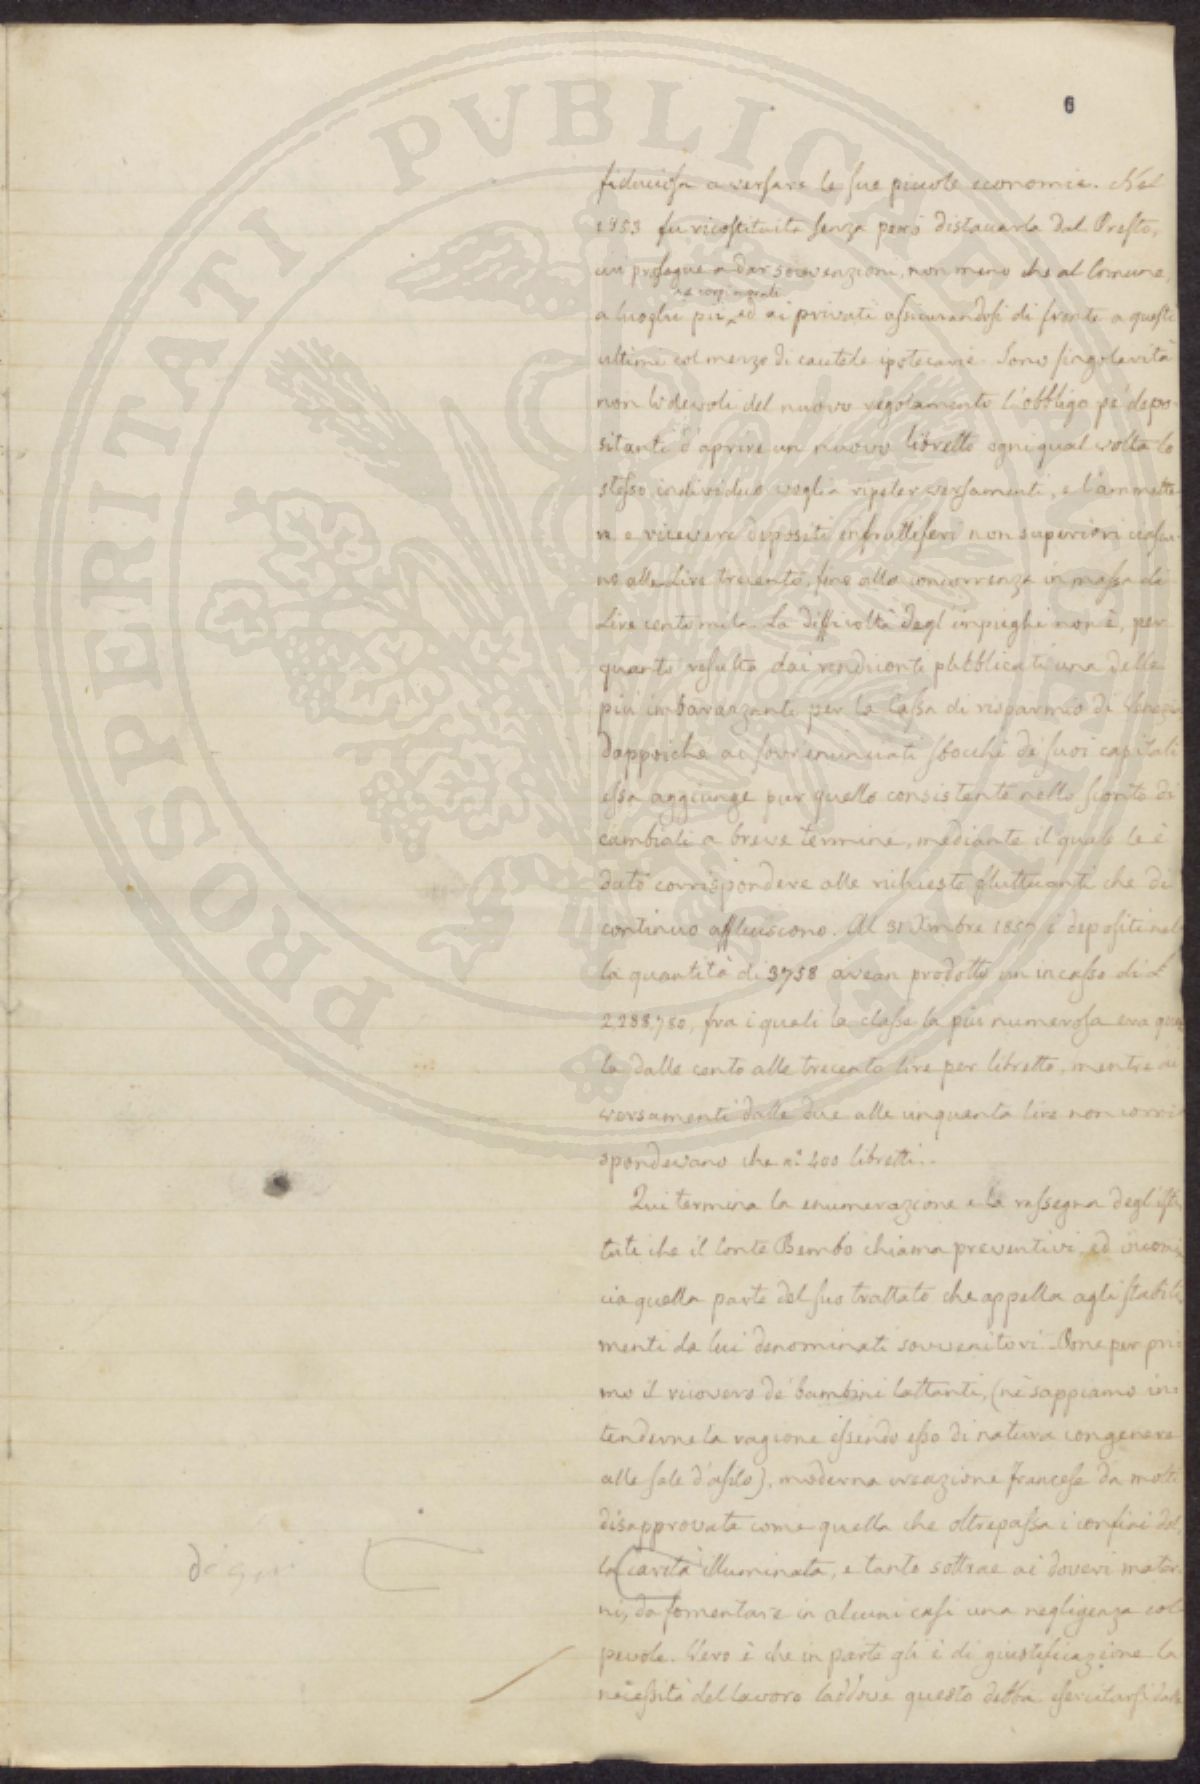 PROSPERITATI PVBLICAE AVGENDAE
6
fiduciosa a versare le sue piccole economie. Nel
1853 fu ricostituita senza però distaccarla dal Presto,
cui prosegue a dar sovvenzioni, non meno che al Comune,
a luoghi pii ed ai privati assicurandosi di fronte a questi
ultimi col mezzo di cautele ipotecarie. Sono singolarità
non lodevoli del nuovo regolamento l'obbligo pe' depo-
sitanti d'aprire un nuovo libretto ogni qual volta lo
stesso individuo voglia ripeter versamenti, e l'ammette-
re e ricevere depositi infruttiferi non superiori ciascu-
no alle Lire trecento, fino alla concorrenza in massa di
Lire cento mila. La difficoltà degl'impieghi non è, per
quanto risulta dai rendiconti pubblicati una delle
più imbarazzanti per la Cassa di risparmio di Venezia
dappoichè ai sovrenunciati sbocchi de suoi capitali
essa aggiunge pur quello consistente nello sconto di
cambiali a breve termine, mediante il quale le è
dato corrispondere alle richieste fluttuanti che di
continuo affluiscono. Al 31 Xmbre 1857 i depositi nel-
la quantità di 3758 avean prodotto un incasso di L
2288,780, fra i quali la classe la più numerosa era quel
la dalle cento alle trecento lire per libretto, mentre ai
versamenti dalle due alle cinquanta lire non corri
spondevano che n.° 400 libretti.
Qui termina la enumerazione e la rassegna degl'isti
tuti che il Conte Bembo chiama preventivi, ed incomin
cia quella parte del suo trattato che appella agli stabili
menti da lui denominati sovvenitori. Pone per pri
mo il ricovero de' bambini lattanti, (nè sappiamo in-
tenderne la ragione essendo esso di natura congenere
alle sale d'asilo), moderna creazione francese da molti
disapprovata come quella che oltrepassa i confini del
la carità illuminata, e tanto sottrae ai doveri mater
ni, da fomentare in alcuni casi una negligenza col
pevole. Vero è che in parte gli è di giustificazione la
necessità del lavoro laddove questo debba esercitarsi dalle